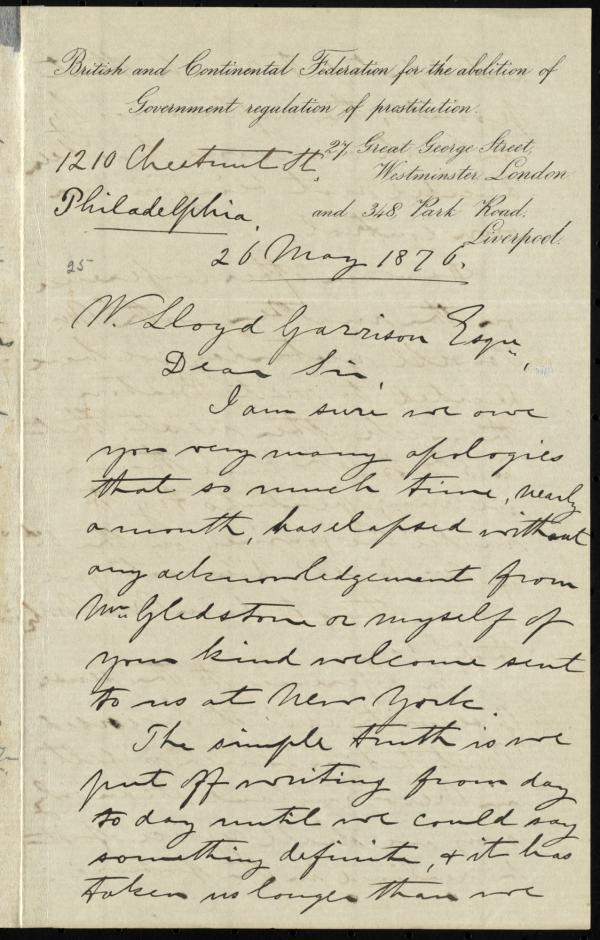 British and Continental Federation for the abolition of
Government regulation of prostitution.
27, Great George Street,
Westminster, London
and 348, Park Road,
Liverpool.
1210 Chestnut St,
Philadelphia,
26 May 1876.
25
W. Lloyd Garrison Esqre,
Dear Sir,
I am sure we owe
you very many apologies
that so much time, nearly
a month, has elapsed without
any acknowledgement from
Mr. Gledstone or myself of
your kind welcome sent
to us at New York.
The simple truth is we
put off writing from day
to day until we could say
something definite, & it has
taken us longer than we